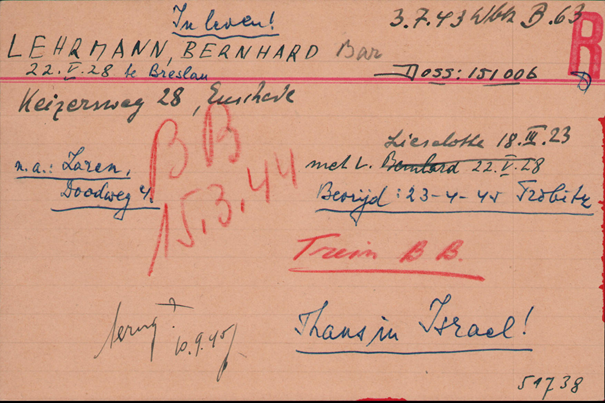 In leven!
3.7.43 Wbk B.63
R
LEHRMANN, BERNHARD Bar
22.V.28 te Breslau
Doss: 151006
Keizersweg 28, Enschede
BB
15.3.44
Lieselotte 18.III.23
n.a.: Laren,
Doodweg 4.
met v. Bernhard 22.V.28
Bevrijd: 23-4-45 Tröbitz
Trein B B.
terug?
10.9.45
Thans in Israel!
51738